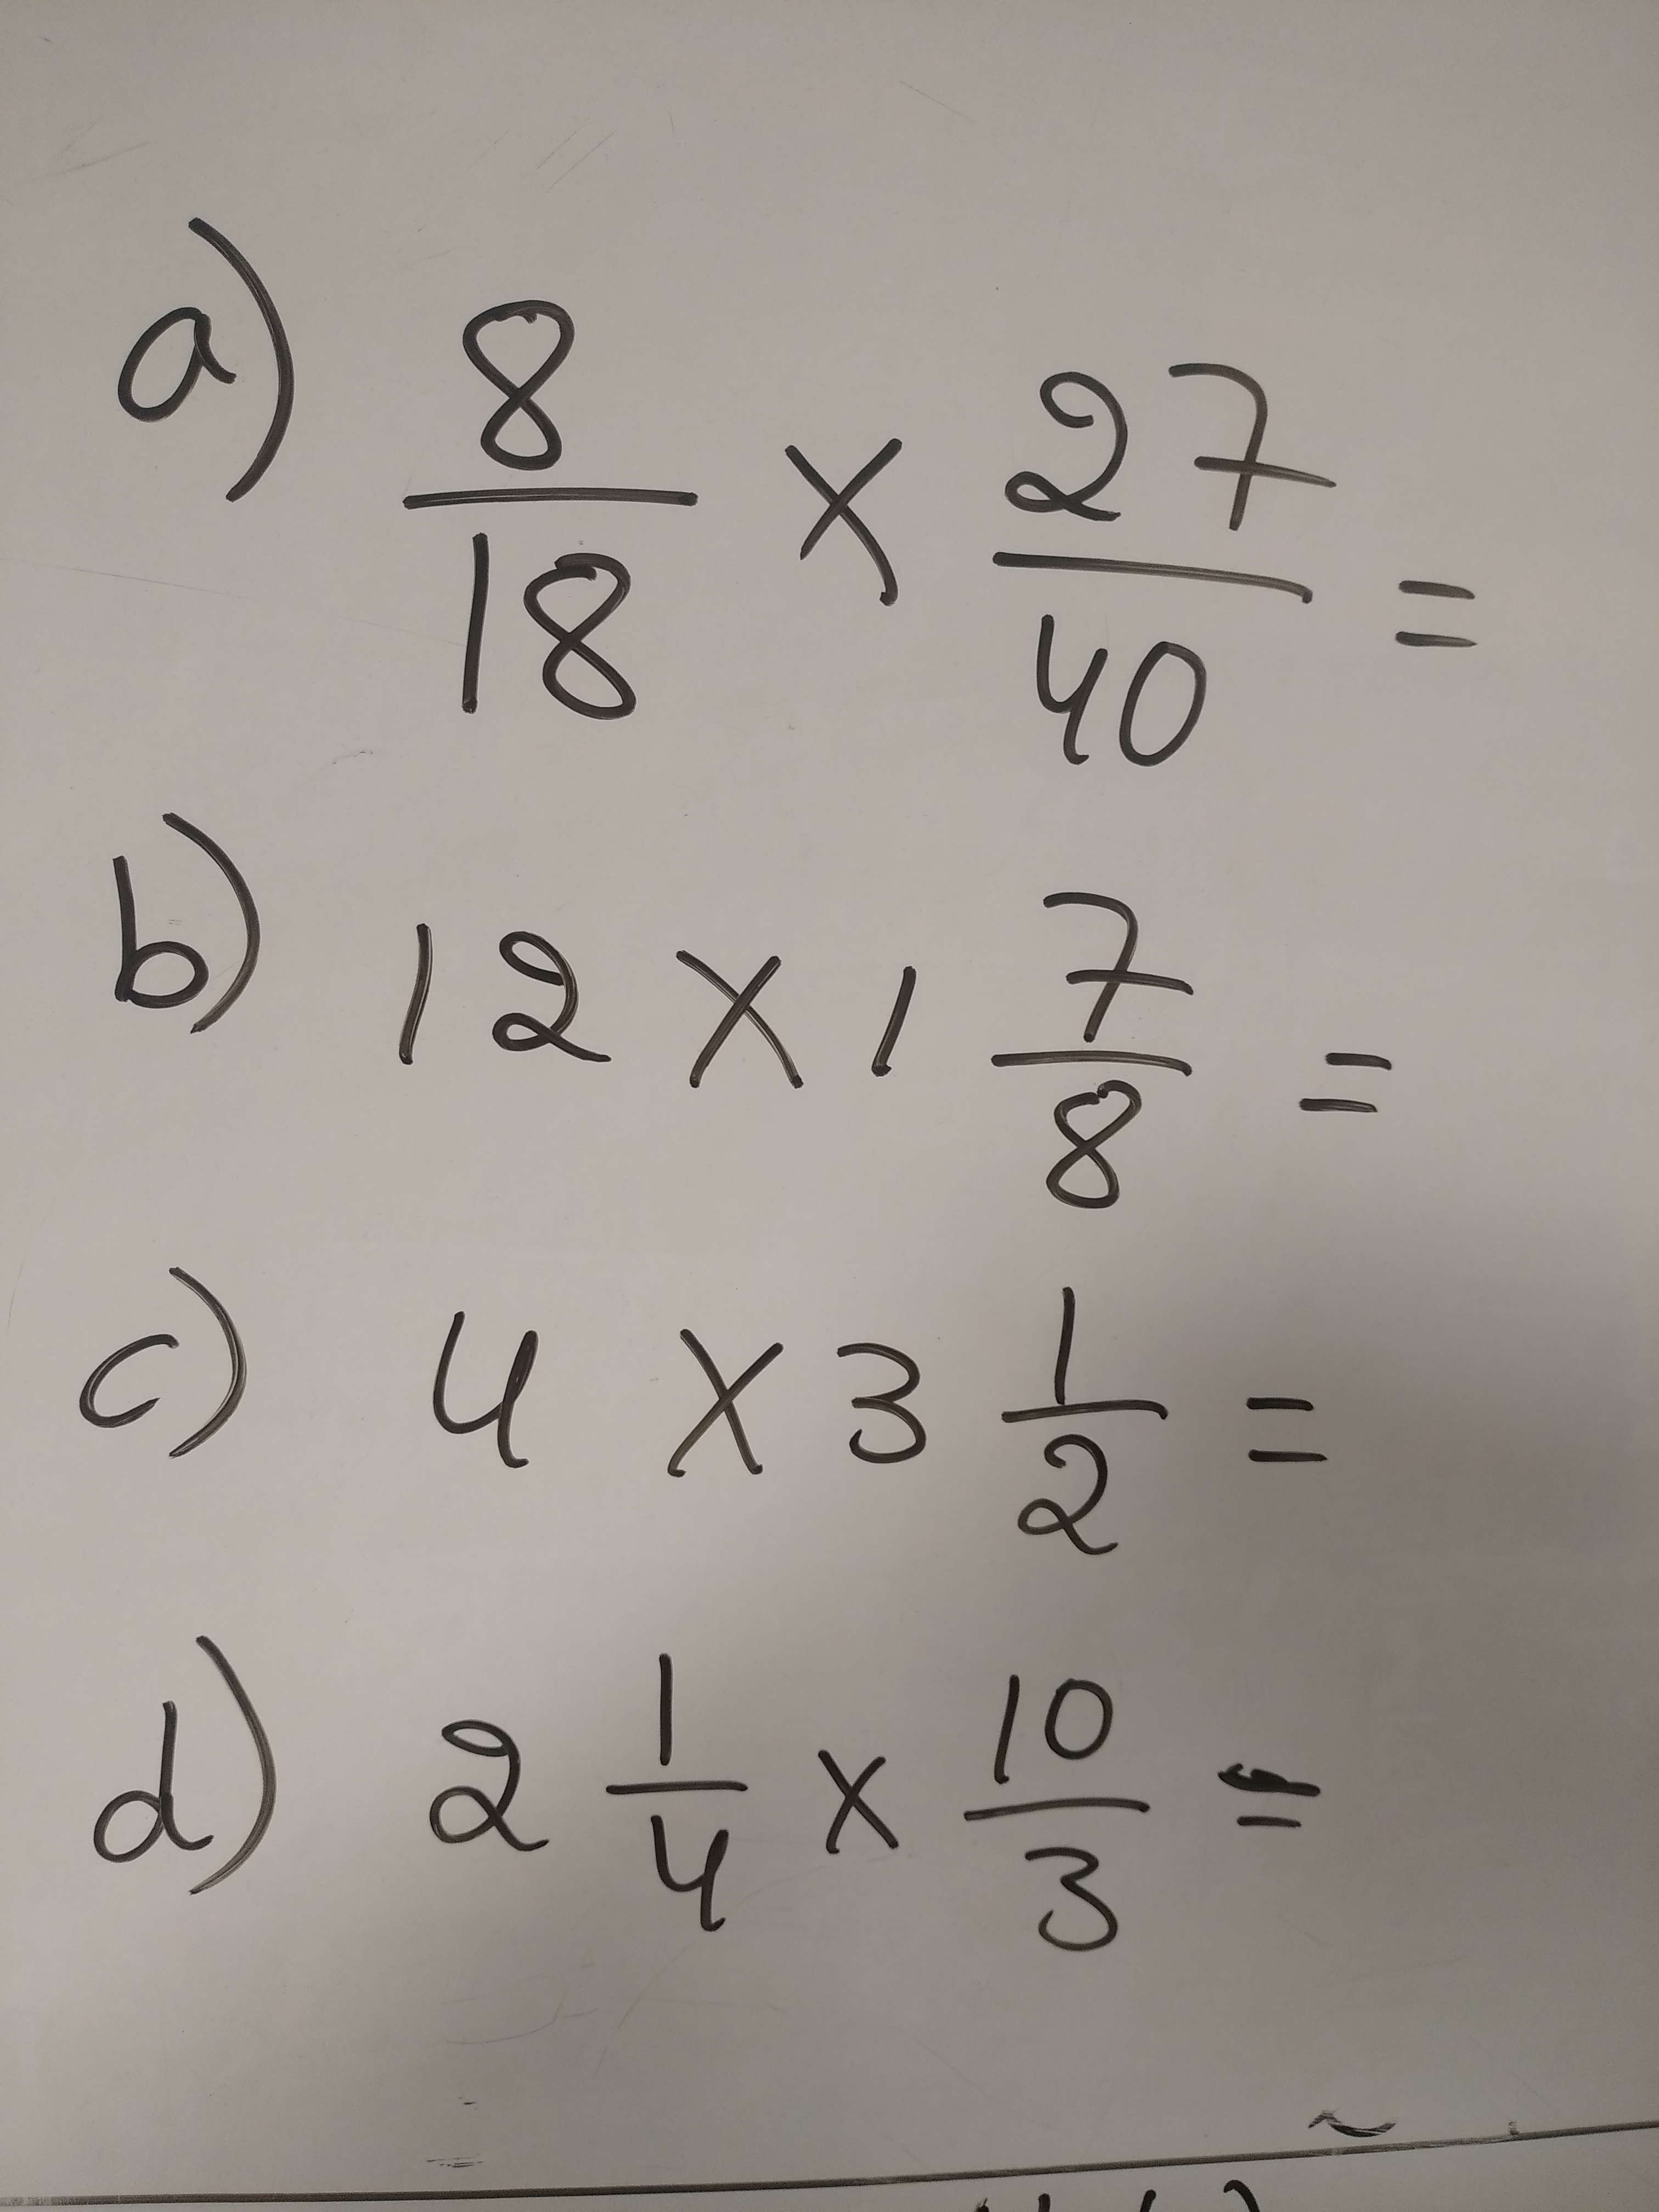 a) 8/18 x 27/40 =
b) 12 x 1 7/8 =
c) 4 x 3 1/2 =
d) 2 1/4 x 10/3 =